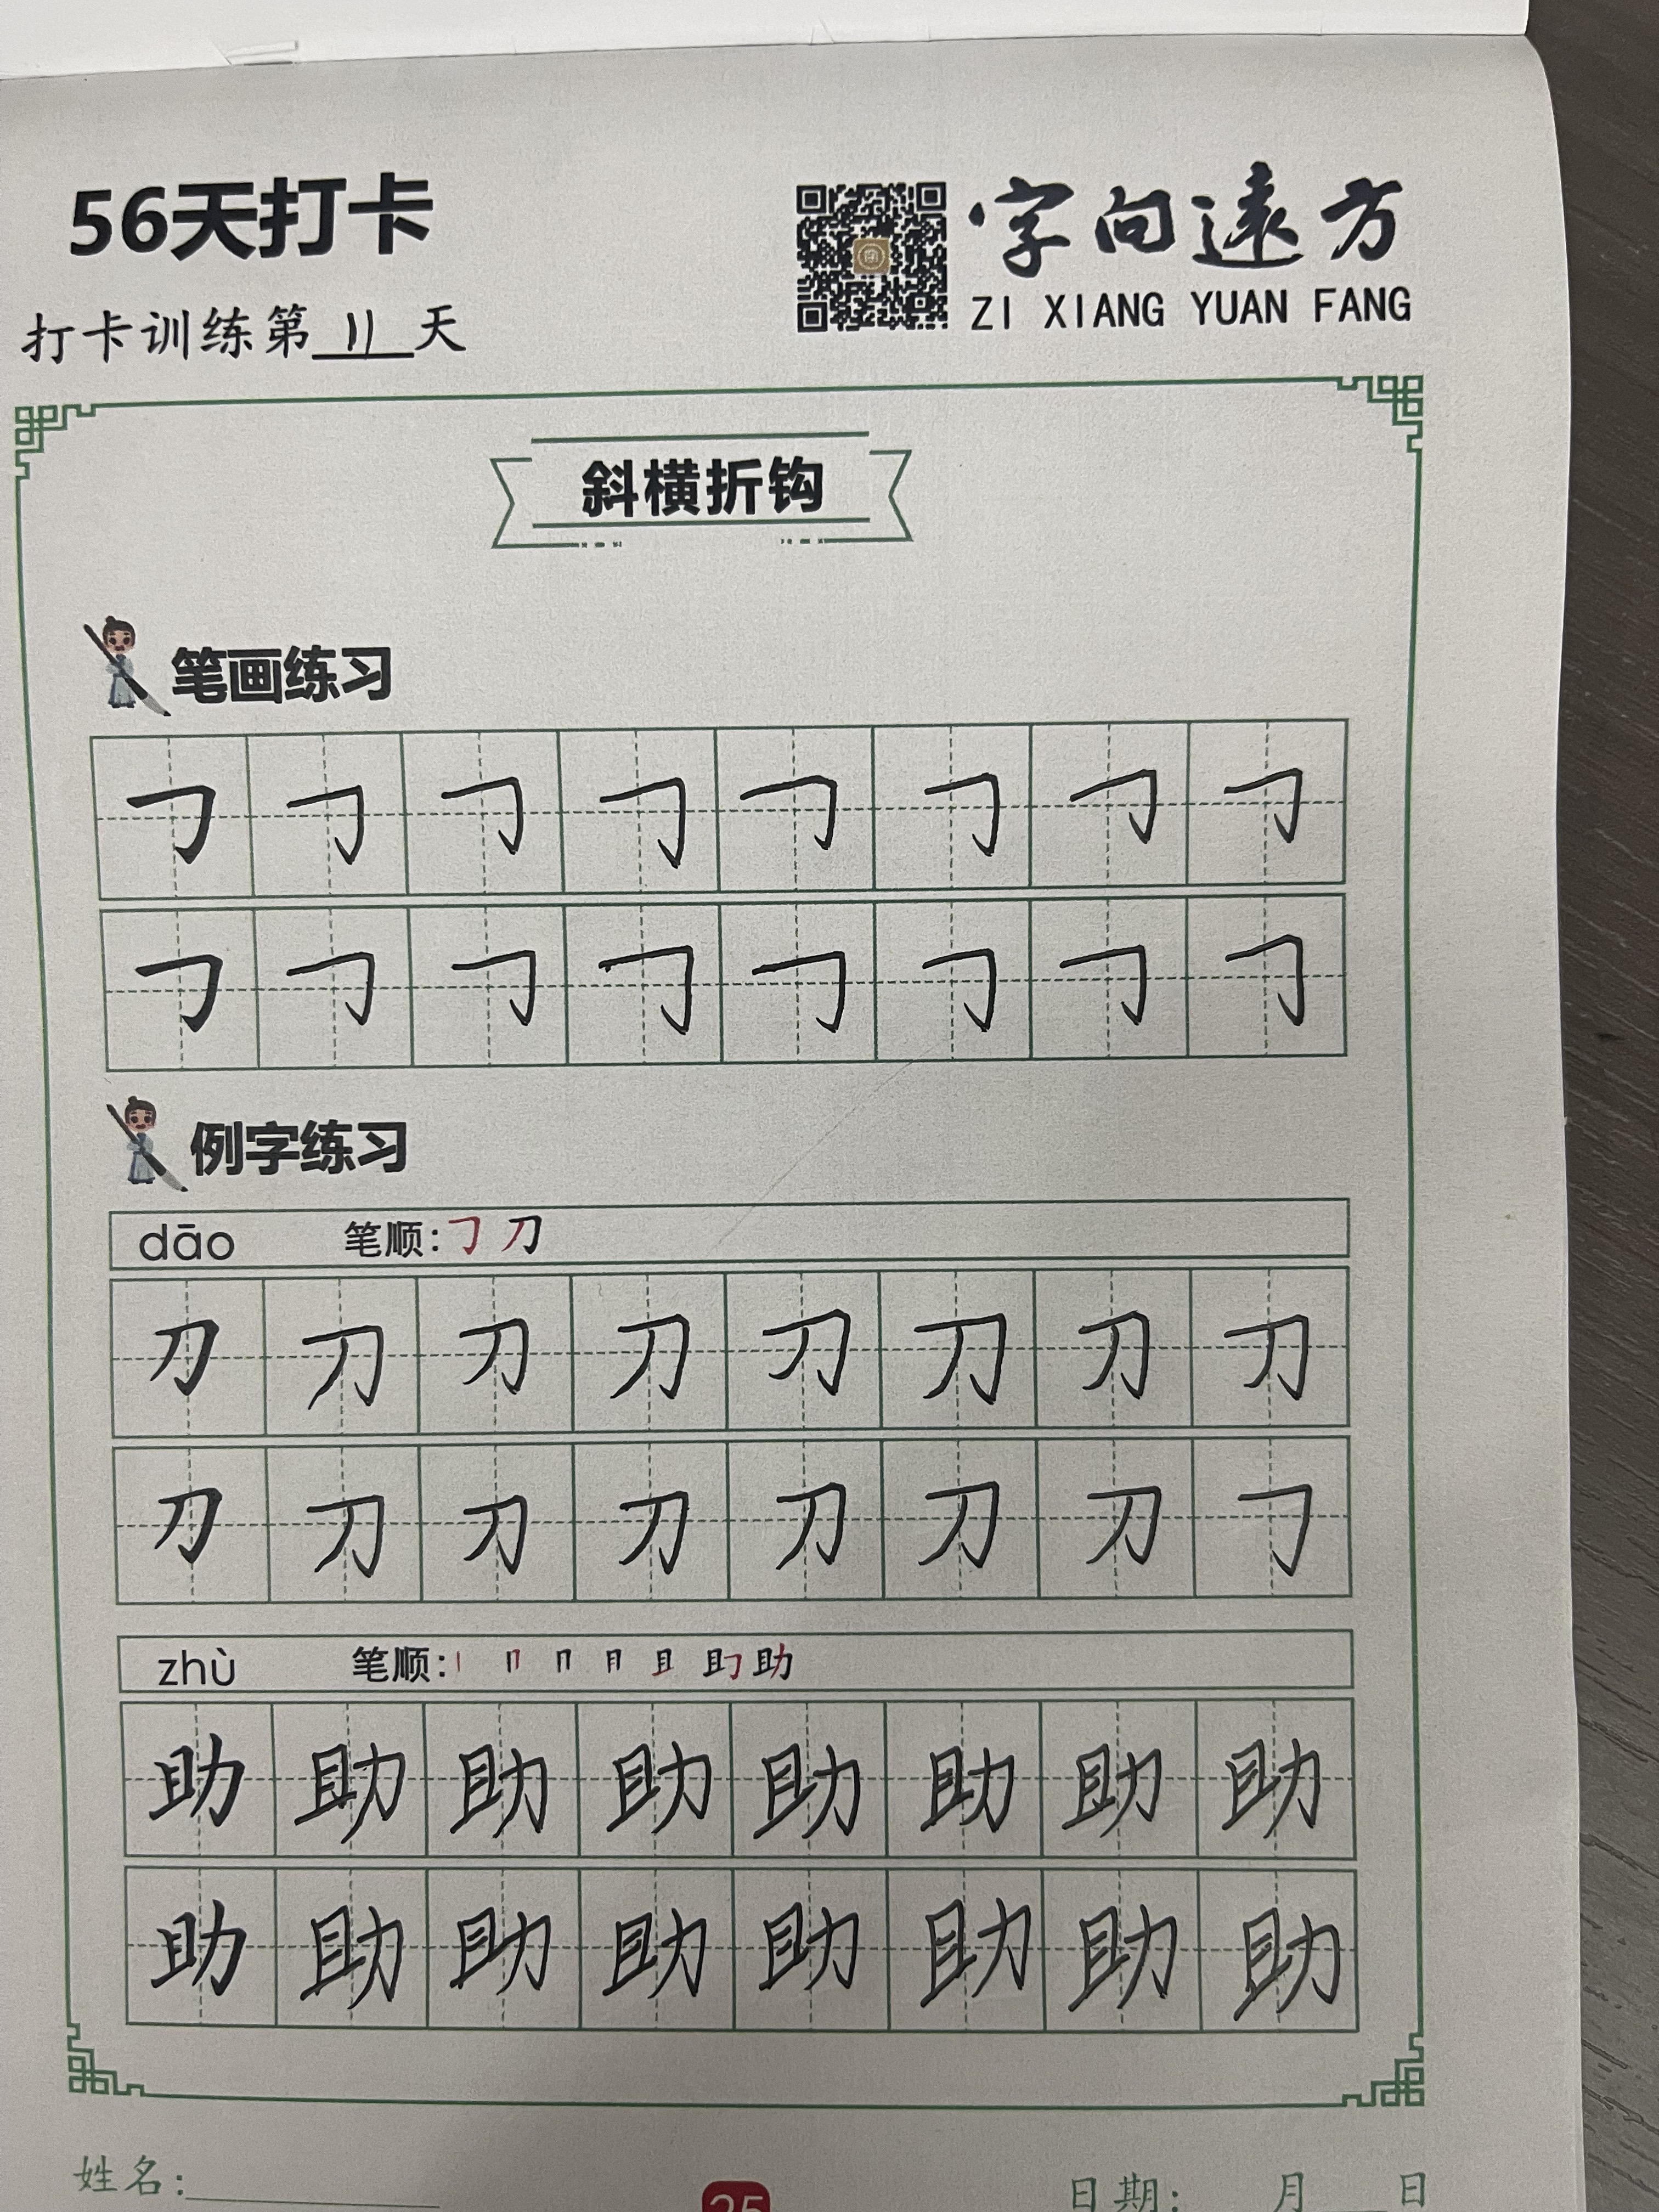 56天打卡
字向遠方
ZI XIANG YUAN FANG
打卡训练第11天
斜横折钩
笔画练习
𠃌 𠃌 𠃌 𠃌 𠃌 𠃌 𠃌 𠃌
𠃌 𠃌 𠃌 𠃌 𠃌 𠃌 𠃌 𠃌
例字练习
dāo 笔顺: 𠃌 刀
刀 刀 刀 刀 刀 刀 刀 刀
刀 刀 刀 刀 刀 刀 刀 𠃌
zhù 笔顺: 助
助 助 助 助 助 助 助 助
助 助 助 助 助 助 助 助
姓名:
25
日期: 月 日